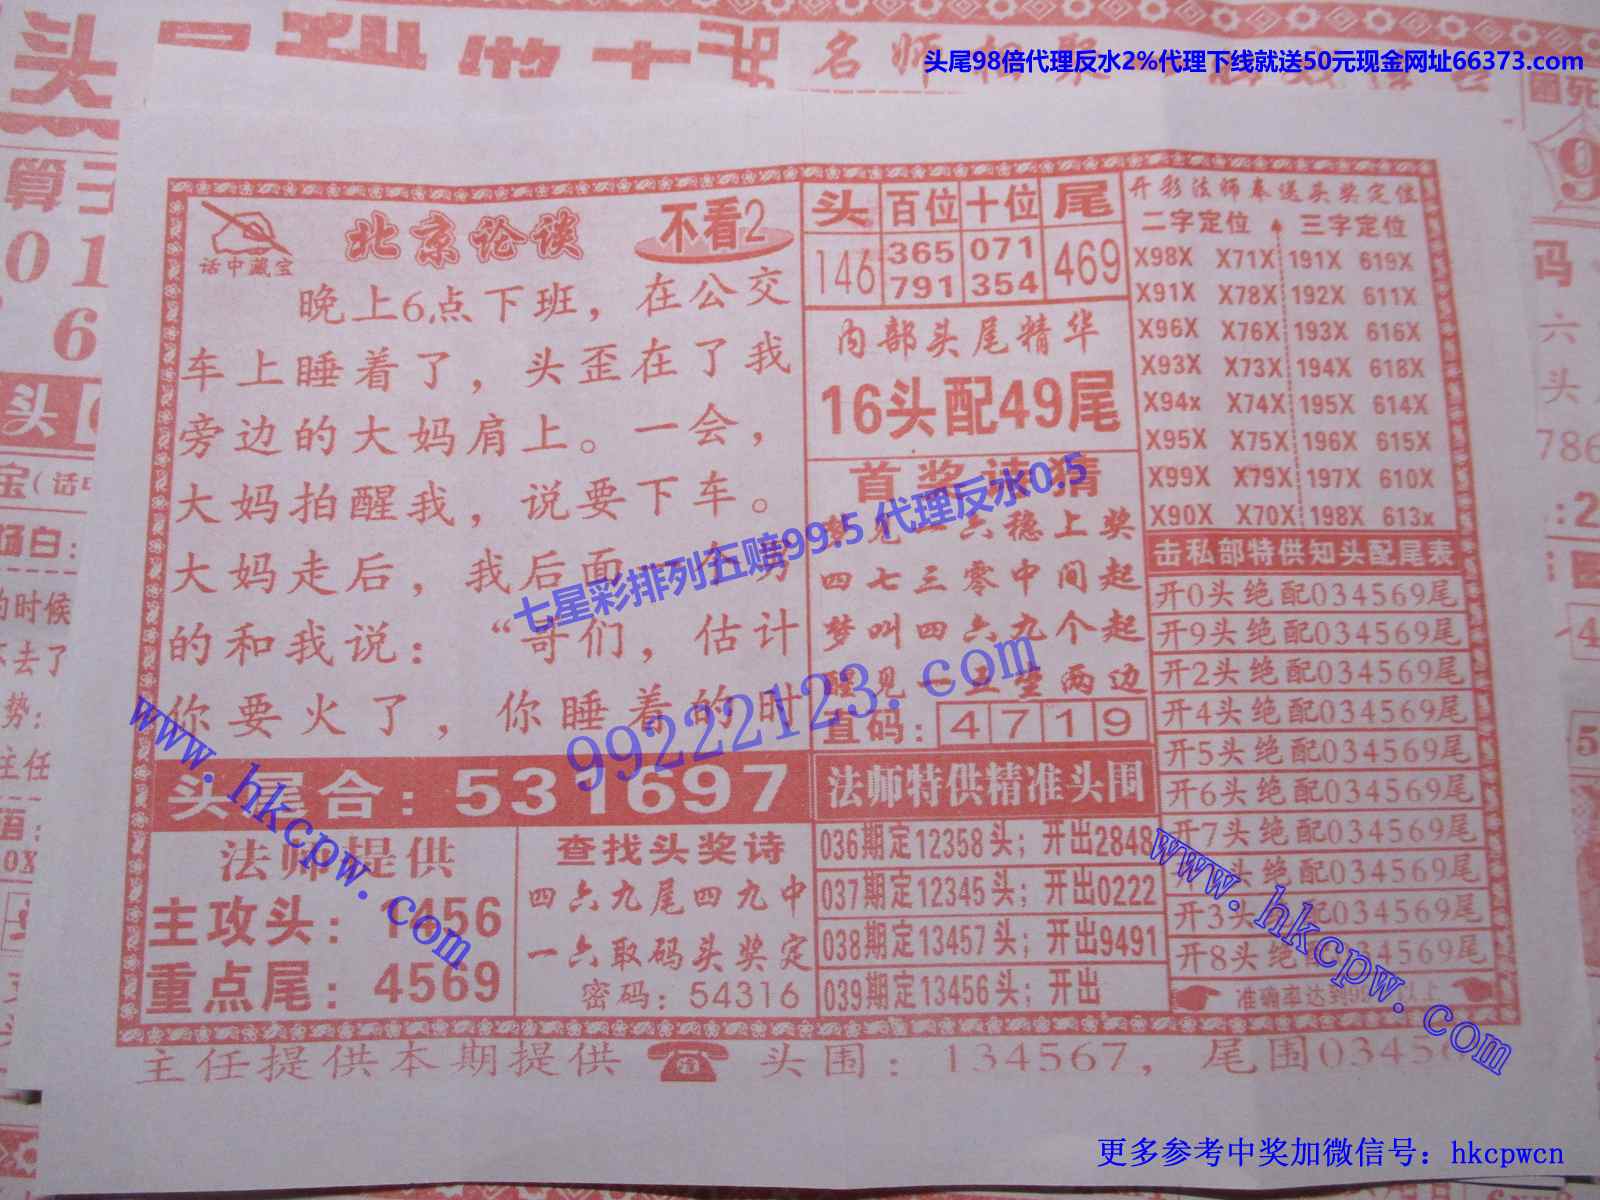 头尾98倍代理反水2%代理下线就送50元现金网址66373.com
话中藏宝
北京论谈
不看2
晚上6点下班，在公交
车上睡着了，头歪在了我
旁边的大妈肩上。一会，
大妈拍醒我，说要下车。
大妈走后，我后面
的和我说：“哥们，估计
你要火了，你睡着的时
头尾合：531697
法师提供
主攻头：1456
重点尾：4569
查找头奖诗
四六九尾四九中
一六取码头奖定
密码：54316
头 百位 十位 尾
146 365 071 469
791 354
内部头尾精华
16头配49尾
首奖诗猜
六稳上奖
四七三零中间起
梦叫四六九个起
见一 两边
直码：4719
法师特供精准头围
036期定12358头；开出2848
037期定12345头；开出0222
038期定13457头；开出9491
039期定13456头；开出
开彩法师奉送头奖定位
二字定位 三字定位
X98X X71X 191X 619X
X91X X78X 192X 611X
X96X X76X 193X 616X
X93X X73X 194X 618X
X94x X74X 195X 614X
X95X X75X 196X 615X
X99X X79X 197X 610X
X90X X70X 198X 613x
击私部特供知头配尾表
开0头绝配034569尾
开9头绝配034569尾
开2头绝配034569尾
开4头绝配034569尾
开5头绝配034569尾
开6头绝配034569尾
开7头绝配034569尾
头绝配034569尾
开3头 配034569尾
开8头绝配034569尾
准确率达到
主任提供本期提供 头围：134567，尾围03456
七星彩排列五赔99.5代理反水0.5
99222123.com
www.hkcpw.com
www.hkcpw.com
更多参考中奖加微信号：hkcpwcn